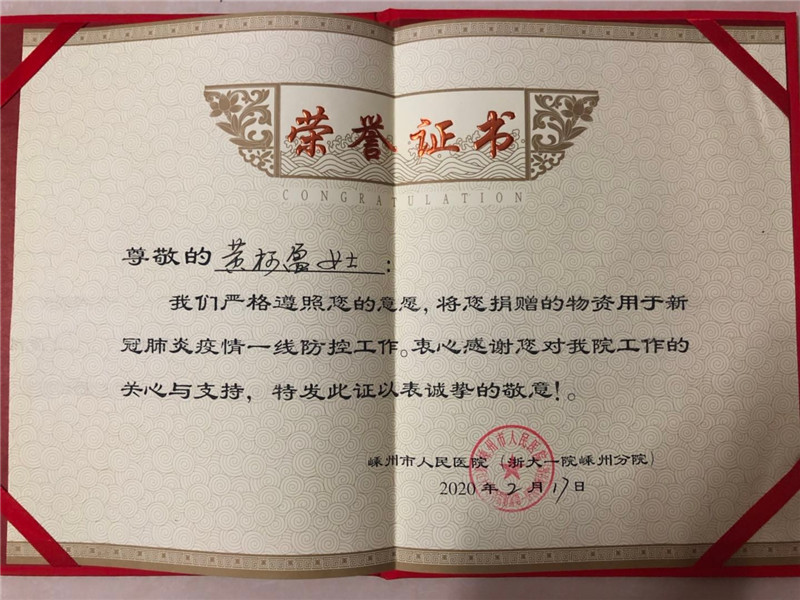 荣誉证书
CONGRATULATION
尊敬的 黄 女士：
我们严格遵照您的意愿，将您捐赠的物资用于新
冠肺炎疫情一线防控工作。衷心感谢您对我院工作的
关心与支持，特发此证以表诚挚的敬意！。
嵊州市人民医院（浙大一院嵊州分院）
2020年2月17日